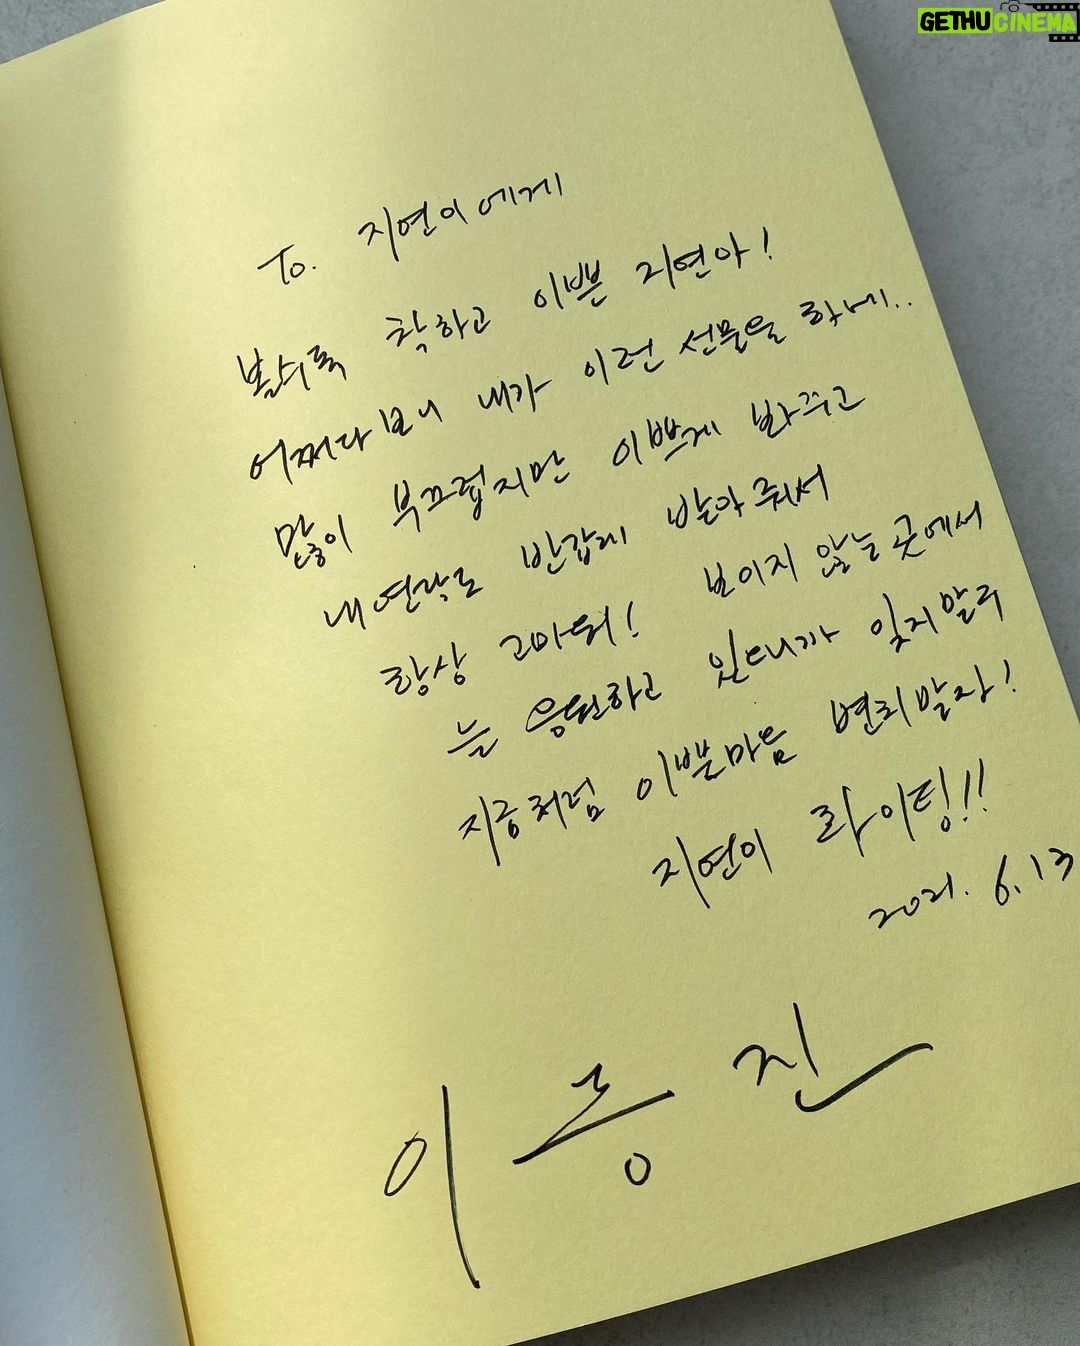 GETHUCINEMA
To. 지연이에게
볼수록 착하고 이쁜 지연아!
어쩌다보니 내가 이런 선물을 하네..
많이 부끄럽지만 이쁘게 봐주고
내연락도 반갑게 받아줘서
항상 고마워! 보이지 않는곳에서
늘 응원하고 있으니까 잊지말구
지금처럼 이쁜마음 변치말자!
지연이 화이팅!!
2021. 6.13
이 종 진